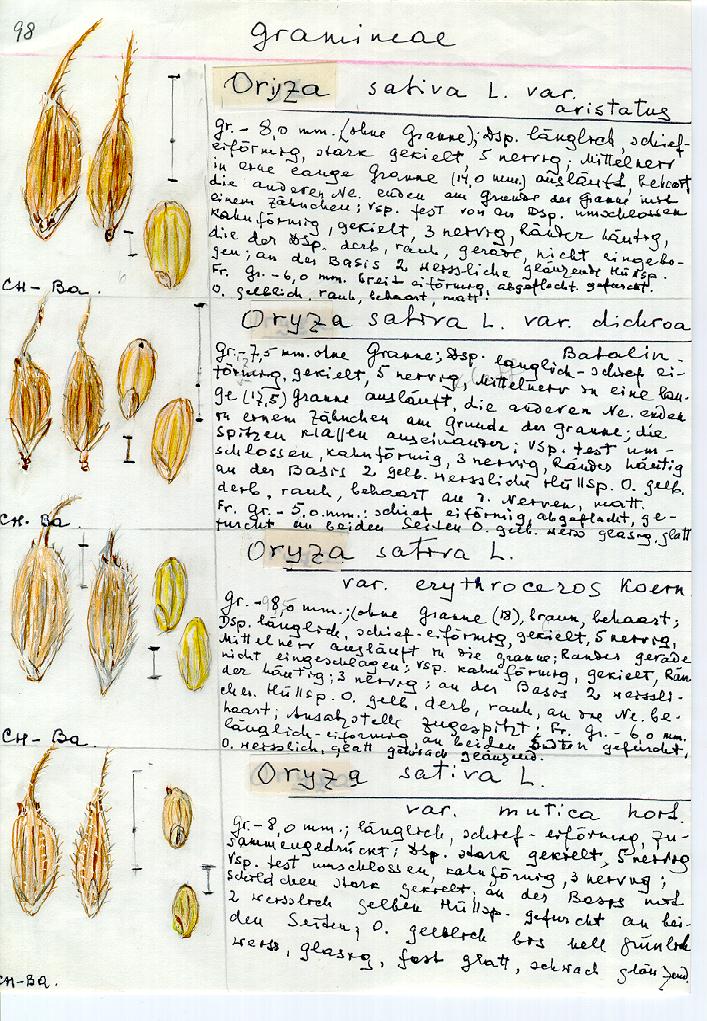 98
Gramineae
Oryza sativa L. var.
aristatus
Gr. - 8,0 mm. (ohne Granne); Dsp. länglich, schief-
eiförmig, stark gekielt 5 nervig; Mittelnerv
in eine lange Granne (14,0 mm.) ausläuft, behaart
die anderen Ne. enden am Grunde der Granne mit
einem Zähnchen; Vsp. fest von an Dsp. umschlossen
kahnförmig, gekielt, 3 nervig, Ränder häutig,
die der Dsp. derb, rauh, gerade, nicht eingebo-
gen; an der Basis 2 weissliche glänzende Hüllsp.
Fr. Gr. - 6,0 mm. breit eiförmig, abgeflacht, gefurcht.
O. gelblich, rauh, behaart, matt.
CH-Ba.
Oryza sativa L. var. dichroa
Batalin-
Gr. - 7,5 mm. ohne Granne; Dsp. länglich-schief ei-
förmig, gekielt, 5 nervig, Mittelnerv in eine lan-
ge (17,5) Granne ausläuft, die anderen Ne. enden
in einem Zähnchen am Grunde der Granne; die
Spitzen klaffen auseinander; Vsp. fest um-
schlossen, kahnförmig, 3 nervig, Ränder häutig
an der Basis 2 gelb. weissliche Hüllsp. O. gelb.
derb, rauh, behaart an d. Nerven, matt.
Fr. gr. - 5,0 mm.: schief eiförmig, abgeflacht, ge-
furcht an beiden Seiten O. gelb. weiss glasig, glatt
CH-Ba.
Oryza sativa L.
var. erythroceros Koern
Gr. - 8,0 mm.; (ohne Granne (18), braun, behaart;
Dsp. länglich, schief-eiförmig, gekielt, 5 nervig,
Mittelnerv ausläuft in die Granne; Ränder gerade
nicht eingeschlagen; Vsp. kahnförmig, gekielt, Rän-
der häutig; 3 nervig; an der Basis 2 weissli-
chen Hüllsp. O. gelb, derb, rauh, an die Ne. be-
haart; Ansatzstelle zugespitzt; Fr. Gr. - 6,0 mm.
länglich-eiförmig, an beiden Seiten gefurcht,
O. weisslich, glatt schwach glänzend.
CH-Ba
Oryza sativa L.
var. mutica hort.
Gr. - 8,0 mm.; länglich, schief-eiförmig, zu-
sammengedrückt; Dsp. stark gekielt, 5 nervig
Vsp. fest umschlossen, kahnförmig, 3 nervig;
Schildchen stark gekielt; an der Basis mit
2 weisslich gelben Hüllsp. gefurcht an bei-
den Seiten; O. gelblich bis hell grünlich
weiss, glasig, fast glatt, schwach glänzend.
CH-Ba.